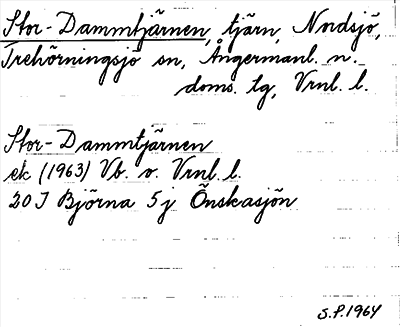 Stor-Dammtjärnen, tjärn, Nordsjö,
Trehörningsjö sn, Ångermanl. n.
doms. lg, Vrnl. l.
Stor-Dammtjärnen
ek (1963) Vb. o. Vrnl. l.
20 I Björna 5j Önskasjön
S.P. 1964